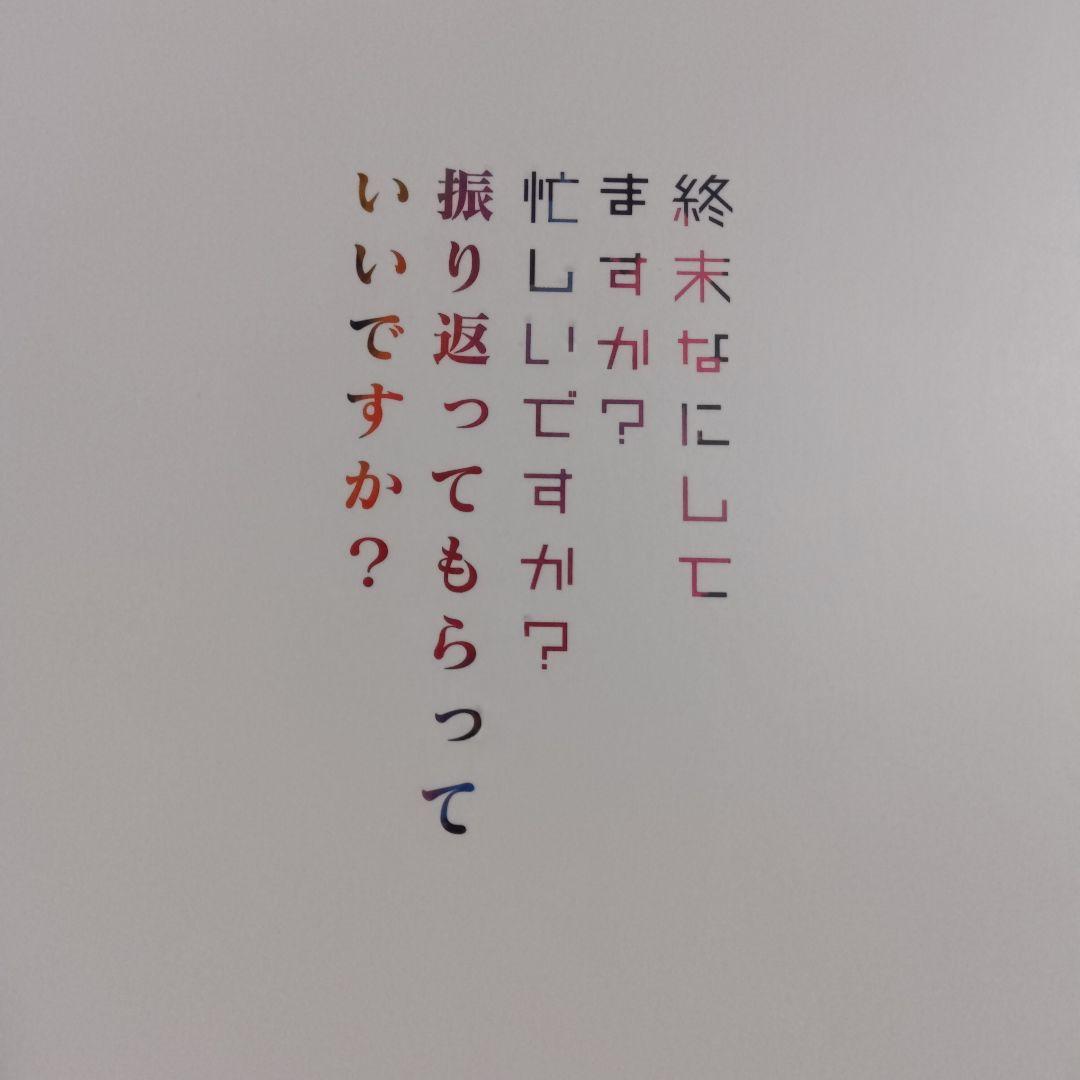 終末なにして
ますか？
忙しいですか？
振り返ってもらって
いいですか？